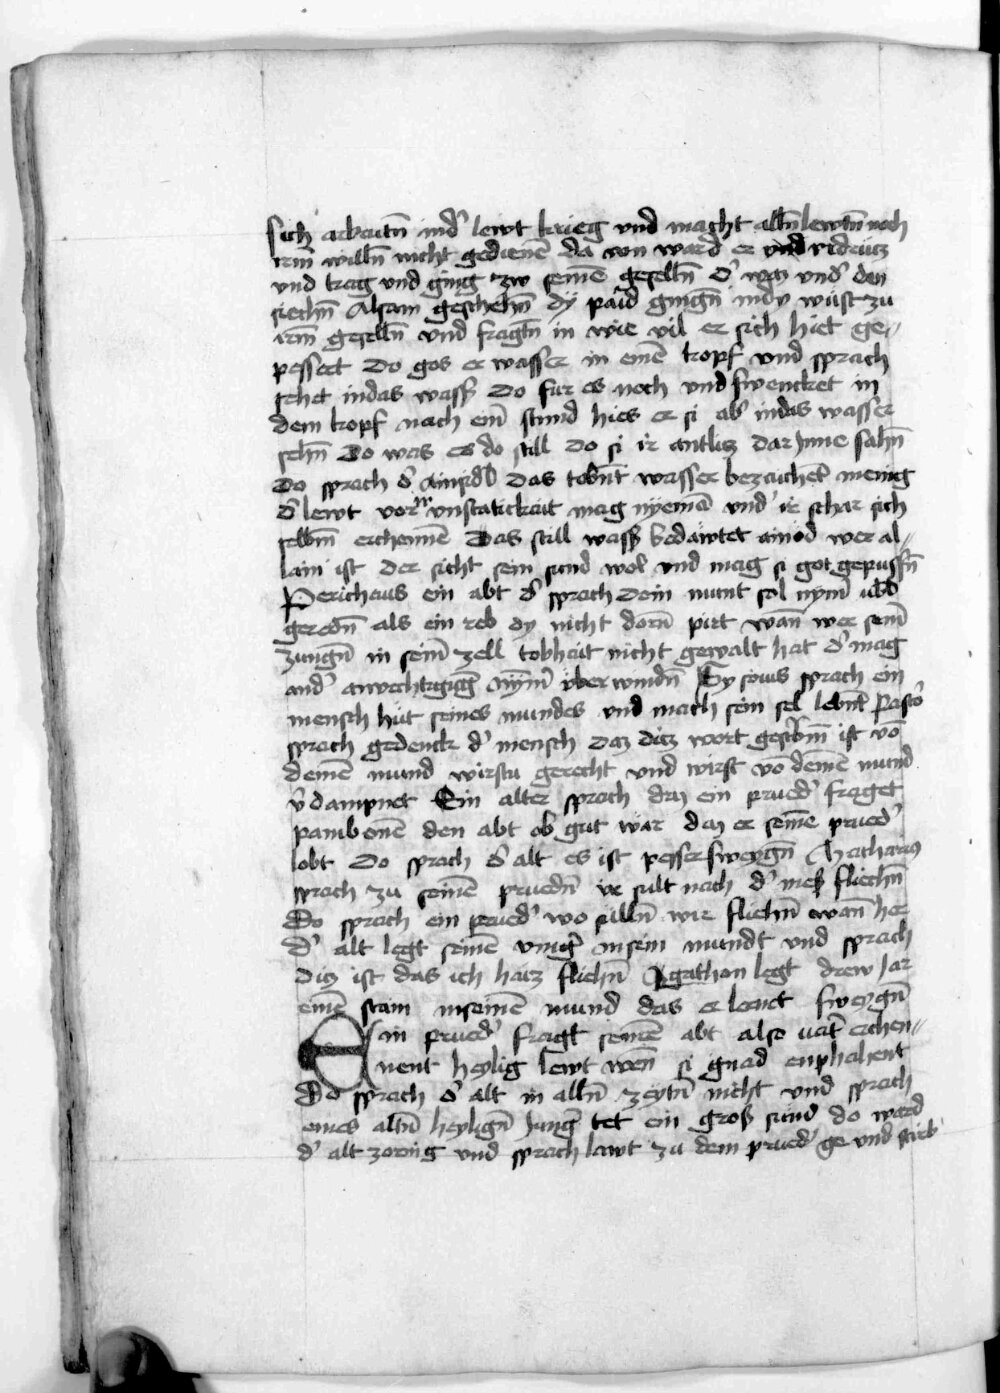 sich arbaitn̄ ind' lewt krieg vnd macht alln̄ lewtn̄ noch
irm̄ willn̄ nicht gedienē da von ward er vrdrücz
vnd trag vnd ging zw seinē geselln̄ d' waz vnd' den
siechn̄ Alsam geschehn̄ dy paid gingn̄ indy wüst zu
irm̄ geselln̄ vnd fragtn̄ in wie vil er sich hiet ge//
pessert Do gos er wasser in einē kopf vnd sprach
sehet indas wasß Do fur es noch vnd swencket in
dem kopf nach ein̄ stund hies er si ab' indas wasser
sehn̄ Do was es do still Do si ir antlicz dar Inne sahn̄
Do sprach d' ainsidl Das tobn̄t wasser bezaichet menig
d' lewt vor vnstatickait mag nyemā vnd' ir schar sich
selbm̄ erchennē Das still wasß bedäwtet ainöd wer al//
lain ist der sicht sein sund wol vnd mag si got gepussn̄
Pericheus ein abt d' sprach Dein munt sol nym̄ übl
geredn̄ als ein reb dy nicht dorn̄ pirt wan̄ wer sein̄
zungn̄ in sein̄ zell tobhait nicht gewalt hat d' mag
and' anvechtūgn̄ nȳm̄ überwindn̄ Sysoius sprach ein
mensch hüt seines mundes vnd mach sein sel lebn̄t Pasto'
sprach gedenck d' mensch daz dicz wort geschribm̄ ist vō
deinē mund wirstu gerecht vnd wirst vō deinē mund
v'dampnet Ein alter sprach daz ein prued' fraget
pambonē den abt ob gut wär daz er seinē prued'
lobt Do sprach d' alt es ist pesser sweygn̄ Macharius
sprach zu seinē pruedn̄ ir sult nach d' meß fliechn̄
Do sprach ein prued' wo sülln̄ wir fliehn̄ wan̄ her
d' alt legt seinē vinger in sein mundt vnd sprach
Dicz ist das ich haiz fliehn̄ Agathon legt drew Jar
einē stain inseinē mund das er lernet sweygn̄
Ein prued' fragt seinē abt also vat' erchen//
nent heylig lewt wen̄ si gnad enphahent
Do sprach d' alt in alln̄ zeytn̄ nicht vnd sprach
eines altn̄ heylign̄ Junger tet ein groß sund do ward
d' alt zornig vnd sprach lawt zu dem prued' ge vnd stirb